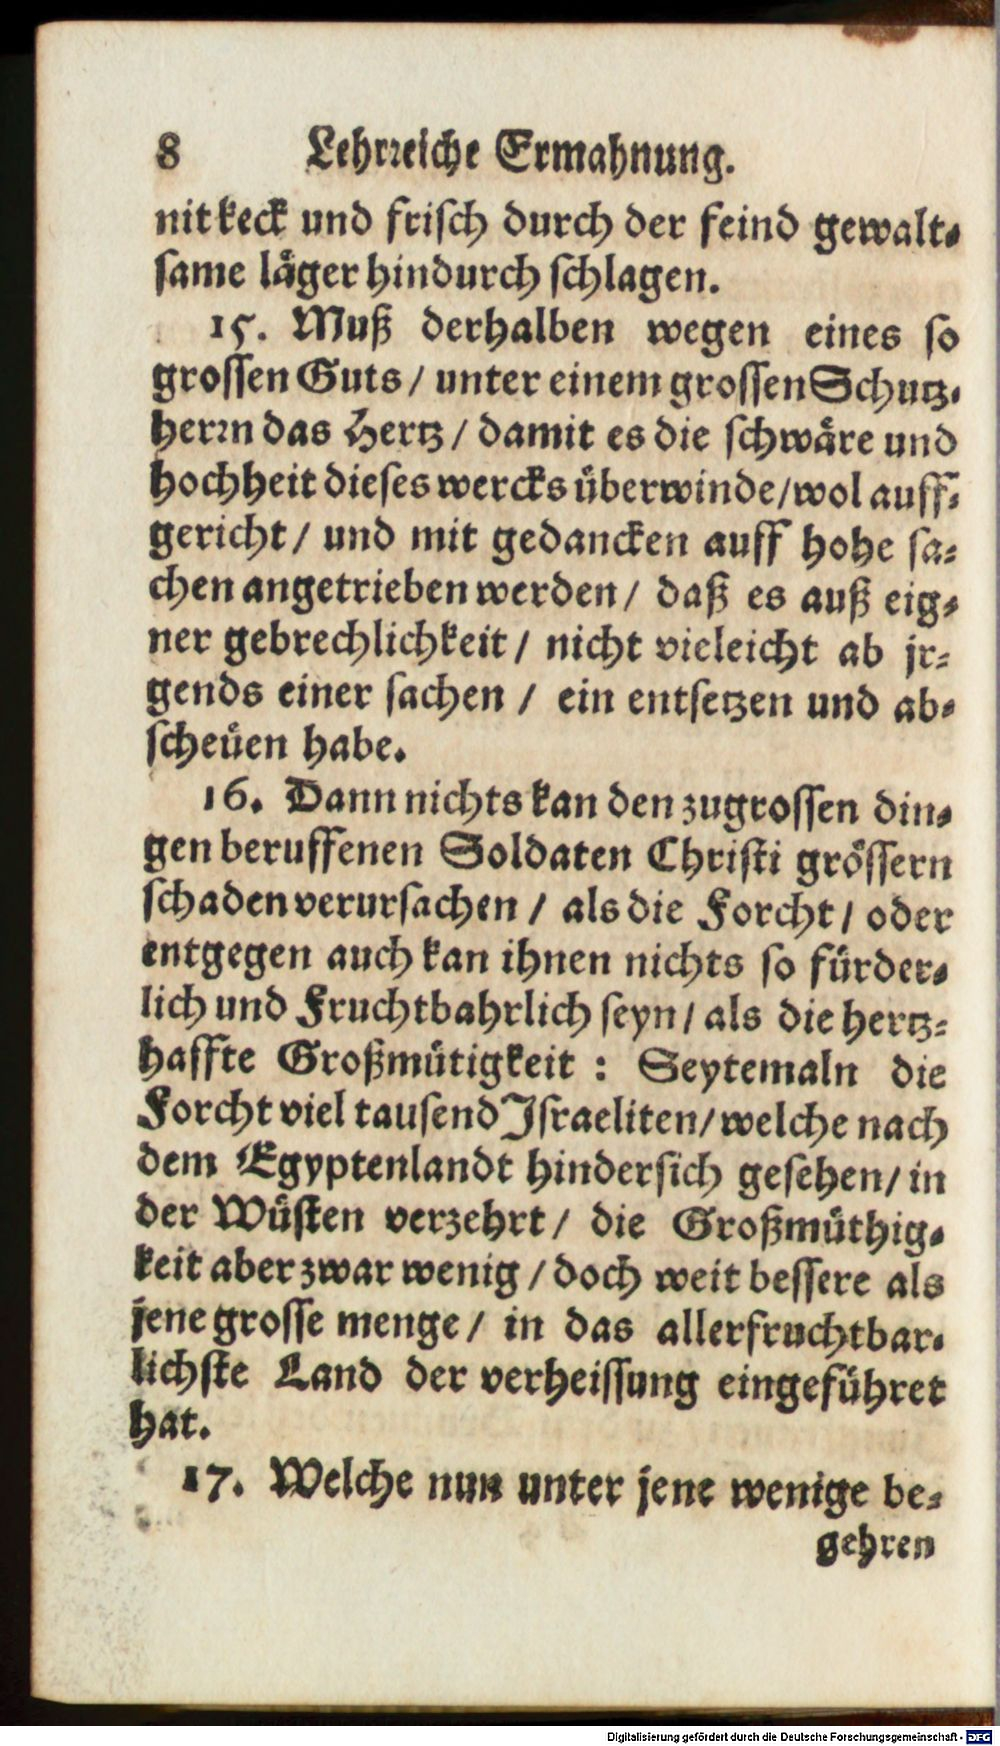 8 Lehrreiche Ermahnung.
nit keck und frisch durch der feind gewalt-
same läger hindurch schlagen.
15. Muß derhalben wegen eines so
grossen Guts / unter einem grossen Schutz-
herrn das Hertz / damit es die schwäre und
hochheit dieses wercks überwinde / wol auff-
gericht / und mit gedancken auff hohe sa-
chen angetrieben werden / daß es auß eig-
ner gebrechlichkeit / nicht vieleicht ab jr-
gends einer sachen / ein entsetzen und ab-
scheüen habe.
16. Dann nichts kan den zugrossen din-
gen beruffenen Soldaten Christi grössern
schaden verursachen / als die Forcht / oder
entgegen auch kan ihnen nichts so fürder-
lich und Fruchtbahrlich seyn / als die hertz-
haffte Großmütigkeit : Seytemaln die
Forcht viel tausend Israeliten / welche nach
dem Egyptenlandt hindersich gesehen / in
der Wüsten verzehrt / die Großmüthig-
keit aber zwar wenig / doch weit bessere als
jene grosse menge / in das allerfruchtbar-
lichste Land der verheissung eingeführet
hat.
17. Welche nun unter jene wenige be-
gehren
Digitalisierung gefördert durch die Deutsche Forschungsgemeinschaft - DFG